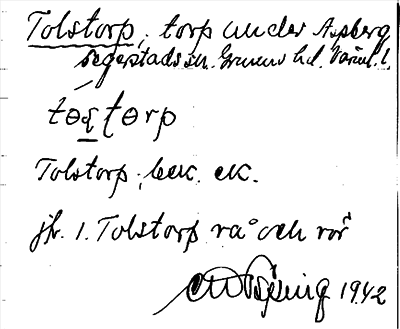 Tolstorp, torp under Aspberg
Segerstads sn. Grums hd. Värml. l.
Tolstorp, bek. ek.
jfr. 1. Tolstorp rå och rör
1942